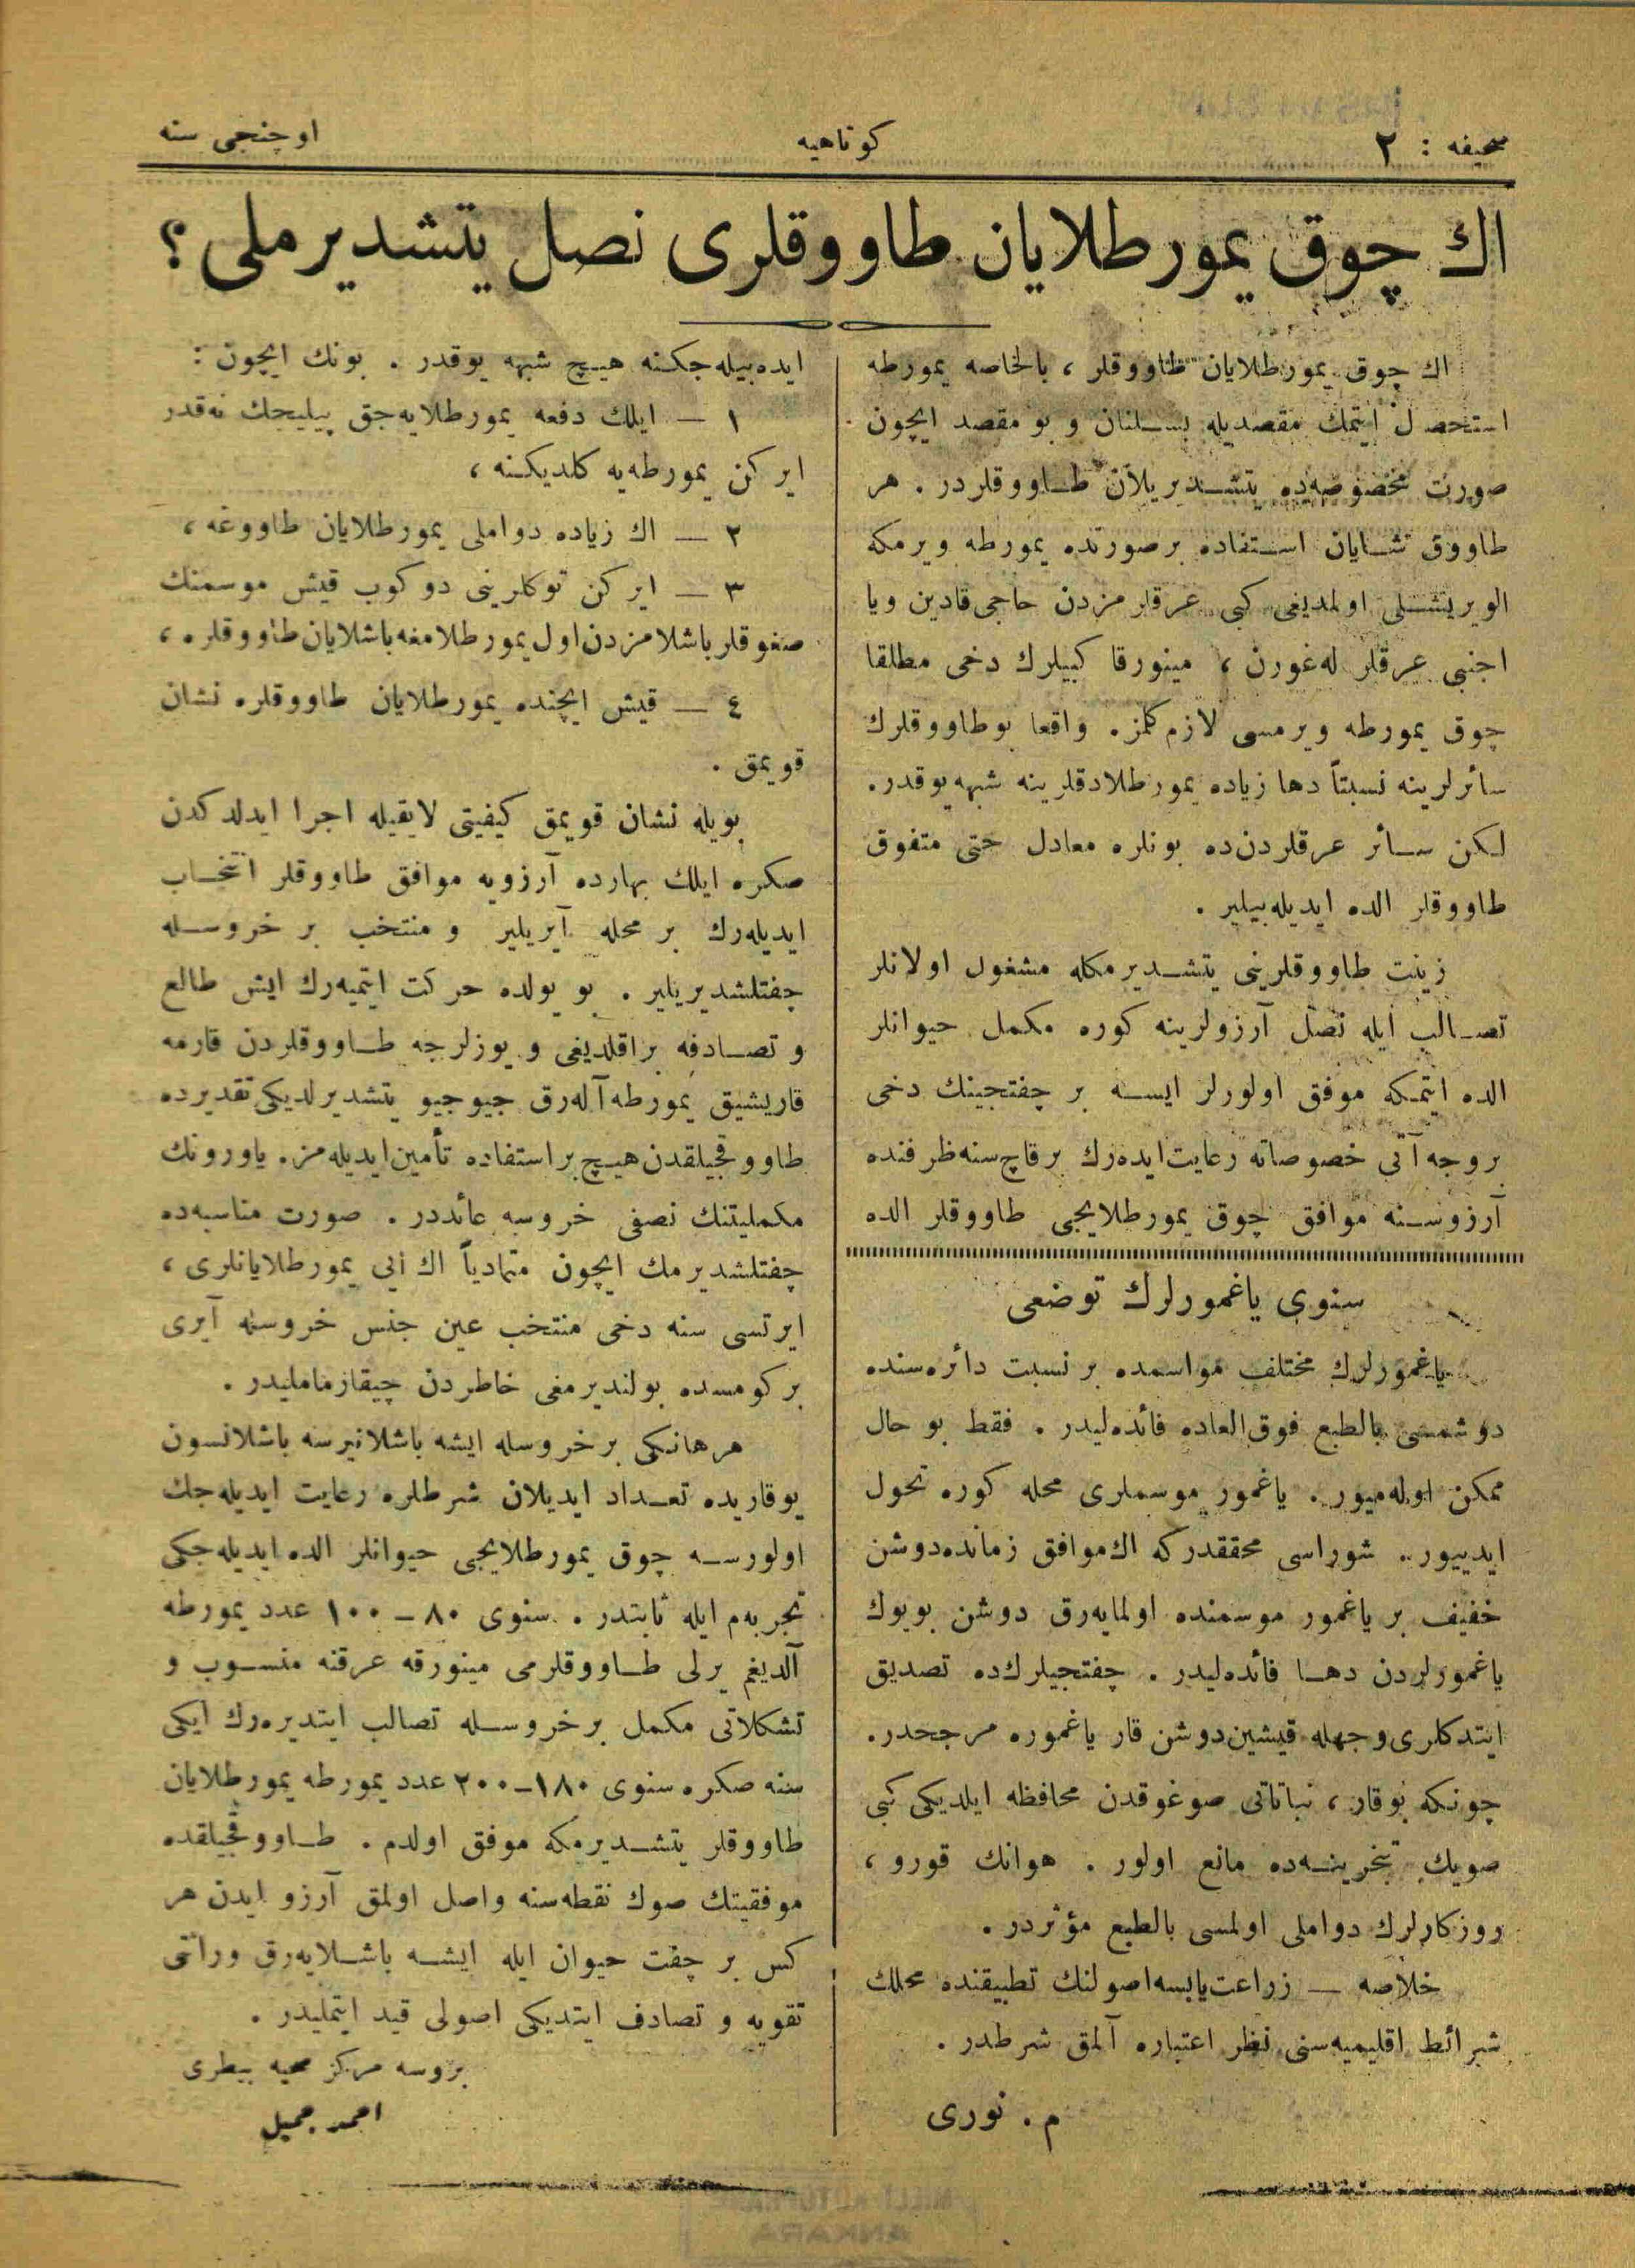 صحيفه : ٢
كوتاهيه
اوچنجى سنه
اك چوق يمورطلايان طاووقلرى نصل يتشديرملى ؟
اك چوق يمورطلايان طاووقلر ، بالخاصه يمورطه
استحصال ايتمك مقصديله بسلنان و بو مقصد ايچون
صورت مخصوصه‌ده يتشديريلان طاووقلردر . هر
طاووق شايان استفاده برصورتده يمورطه ويرمكه
الويريشلى اولمديغى كبى عرقلرمزدن حاجى قادين ويا
اجنبى عرقلر له‌غورن ، مينورقا كبيلرك دخى مطلقا
چوق يمورطه ويرمسى لازم كلمز . واقعا بو طاووقلرك
سائرلرينه نسبتاً دها زياده يمورطلادقلرينه شبهه يوقدر .
لكن سائر عرقلردن‌ده بونلره معادل حتى متفوق
طاووقلر الده ايديله‌بيلير .
زينت طاووقلرينى يتشديرمكله مشغول اولانلر
تصالب ايله نصل آرزولرينه كوره مكمل حيوانلر
الده ايتمكه موفق اولورلر ايسه بر چفتجينك دخى
بروجه آتى خصوصاته رعايت ايده‌رك برقاچ سنه ظرفنده
آرزوسنه موافق چوق يمورطلايجى طاووقلر الده
ايده‌بيله‌جكنه هيچ شبهه يوقدر . بونك ايچون :
١ — ايلك دفعه يمورطلايه‌جق پيليجك نه‌قدر
ايركن يمورطه‌يه كلديكنه ،
٢ — اك زياده دواملى يمورطلايان طاووغه ،
٣ — ايركن توكلرينى دوكوب قيش موسمنك
صغوقلر باشلامزدن اول يمورطلامغه باشلايان طاووقلره ،
٤ — قيش ايچنده يمورطلايان طاووقلره نشان
قويمق .
بويله نشان قويمق كيفيتى لايقيله اجرا ايدلدكدن
صكره ايلك بهارده آرزويه موافق طاووقلر انتخاب
ايديله‌رك بر محله آيريلير و منتخب بر خروسله
چفتلشديريلير . بو يولده حركت ايتميه‌رك ايش طالع
و تصادفه براقلديغى و يوزلرجه طاووقلردن قارمه
قاريشيق يمورطه آله‌رق جيوجيو يتشديرلديكى تقديرده
طاووقجيلقدن هيچ بر استفاده تأمين ايديله‌مز . ياورونك
مكمليتنك نصفى خروسه عائددر . صورت مناسبه‌ده
چفتلشديرمك ايچون متمادياً اك ايى يمورطلايانلرى ،
ايرتسى سنه دخى منتخب عين جنس خروسله آيرى
بر كومسده بولنديرمغى خاطردن چيقارمامليدر .
هر هانكى بر خروسله ايشه باشلانيرسه باشلانسون
يوقاريده تعداد ايديلان شرطلره رعايت ايديله‌جك
اولورسه چوق يمورطلايجى حيوانلر الده ايديله‌جكى
تجربه‌م ايله ثابتدر . سنوى ٨٠ – ١٠٠ عدد يمورطه
آلديغم يرلى طاووقلرمى مينورقه عرقنه منسوب و
تشكلاتى مكمل بر خروسله تصالب ايتديره‌رك ايكى
سنه صكره سنوى ١٨٠–٢٠٠ عدد يمورطه يمورطلايان
طاووقلر يتشديرمكه موفق اولدم . طاووقجيلقده
موفقيتك صوك نقطه‌سنه واصل اولمق آرزو ايدن هر
كس بر چفت حيوان ايله ايشه باشلايه‌رق وراثتى
تقويه و تصادف ايتديكى اصولى قيد ايتمليدر .
بروسه مركز صحيه بيطرى
احمد جميل
سنوى ياغمورلرك توضعى
ياغمورلرك مختلف مواسمده بر نسبت دائره‌سنده
دوشمسى بالطبع فوق‌العاده فائده‌ليدر . فقط بو حال
ممكن اوله‌ميور . ياغمور موسملرى محله كوره تحول
ايدييور . شوراسى محققدركه اك موافق زمانده دوشن
خفيف بر ياغمور موسمنده اولمايه‌رق دوشن بويوك
ياغمورلردن دها فائده‌ليدر . چفتجيلرك‌ده تصديق
ايتدكلرى وجهله قيشين دوشن قار ياغموره مرجحدر .
چونكه بوقار ، نباتاتى صوغوقدن محافظه ايلديكى كبى
صويك تبخرينه‌ده مانع اولور . هوانك قورو ،
روزكارلرك دواملى اولمسى بالطبع مؤثردر .
خلاصه — زراعت يابسه اصولنك تطبيقنده محلك
شرائط اقليميه‌سنى نظر اعتباره آلمق شرطدر .
م . نورى